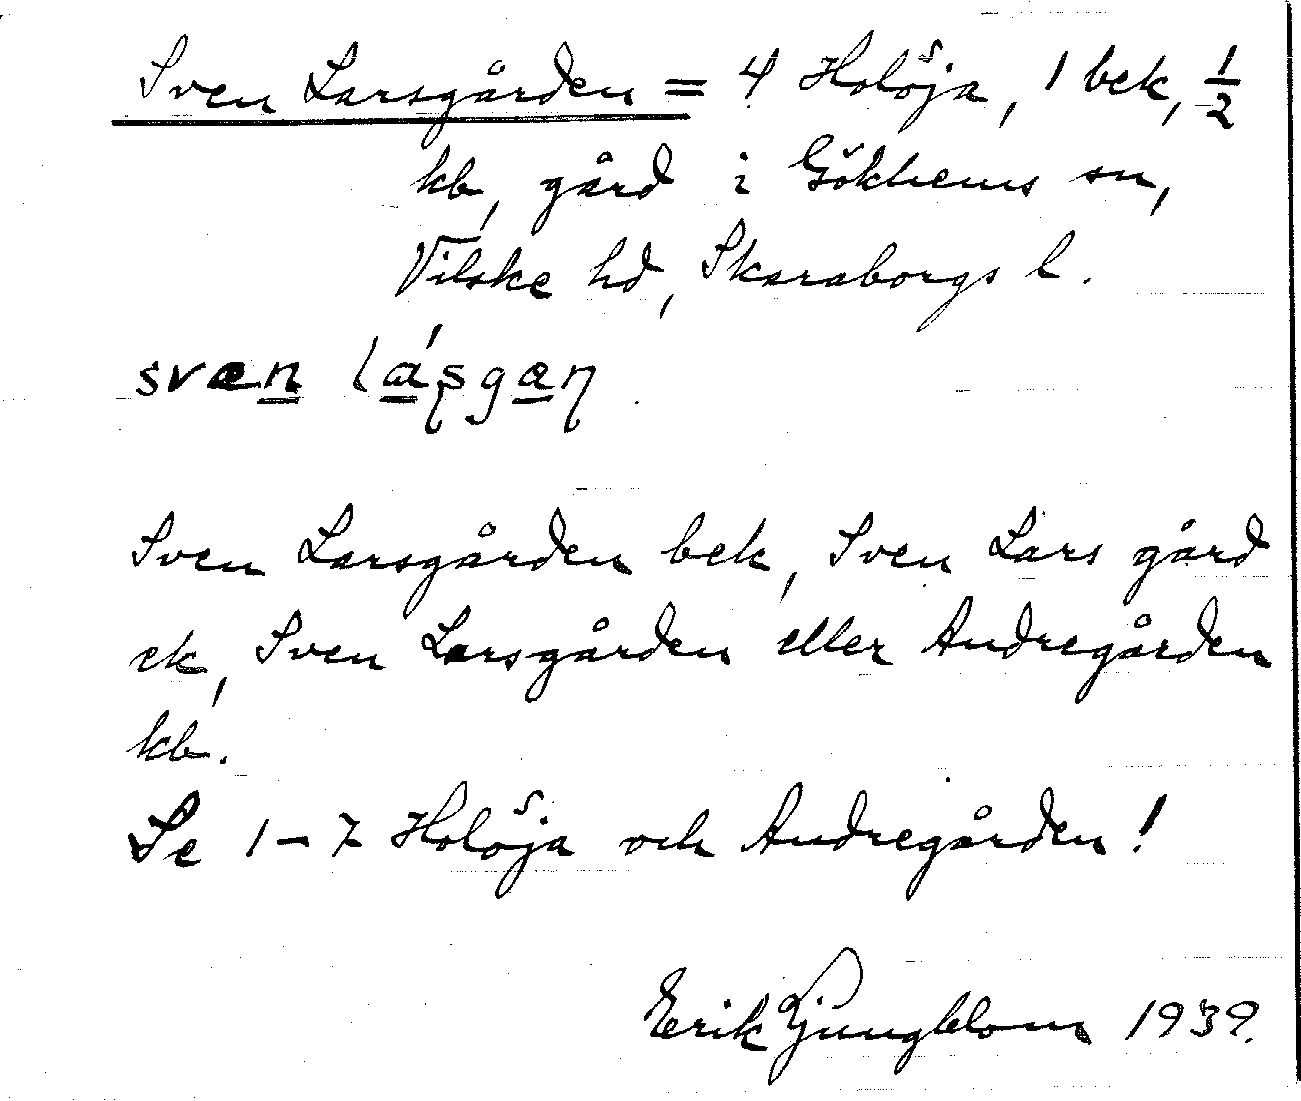 Sven Larsgården = 4 Holöja, 1 bek, 1/2
kb, gård i Gökhems sn,
Vilske hd, Skaraborgs l.
svæn lásgan
Sven Larsgården bek, Sven Lars gård
ek, Sven Larsgården eller Andregården
kb.
Se 1-7 Holöja och Andregården!
Erik Ljungblom 1939.